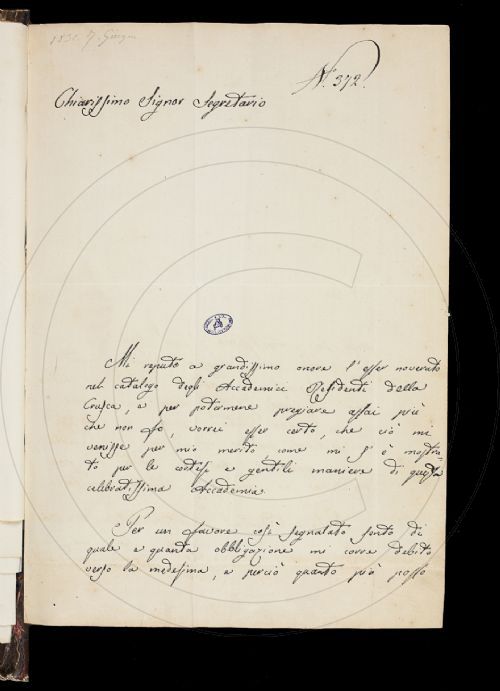 1831. 7. Giugno
N.° 372.
Chiarissimo Signor Segretario
Mi reputo a grandissimo onore l'esser noverato
nel catalogo degli Accademici Residenti della
Crusca, e per potermene pregiare assai più
che non fo, vorrei esser certo, che ciò mi
venisse per mio merito, come mi s'è mostra-
to per le cortesi e gentili maniere di questa
celebratissima Accademia.
Per un favore così segnalato sento di
quale e quanta obbligazione mi corre debito
verso la medesima, e perciò quanto più posso